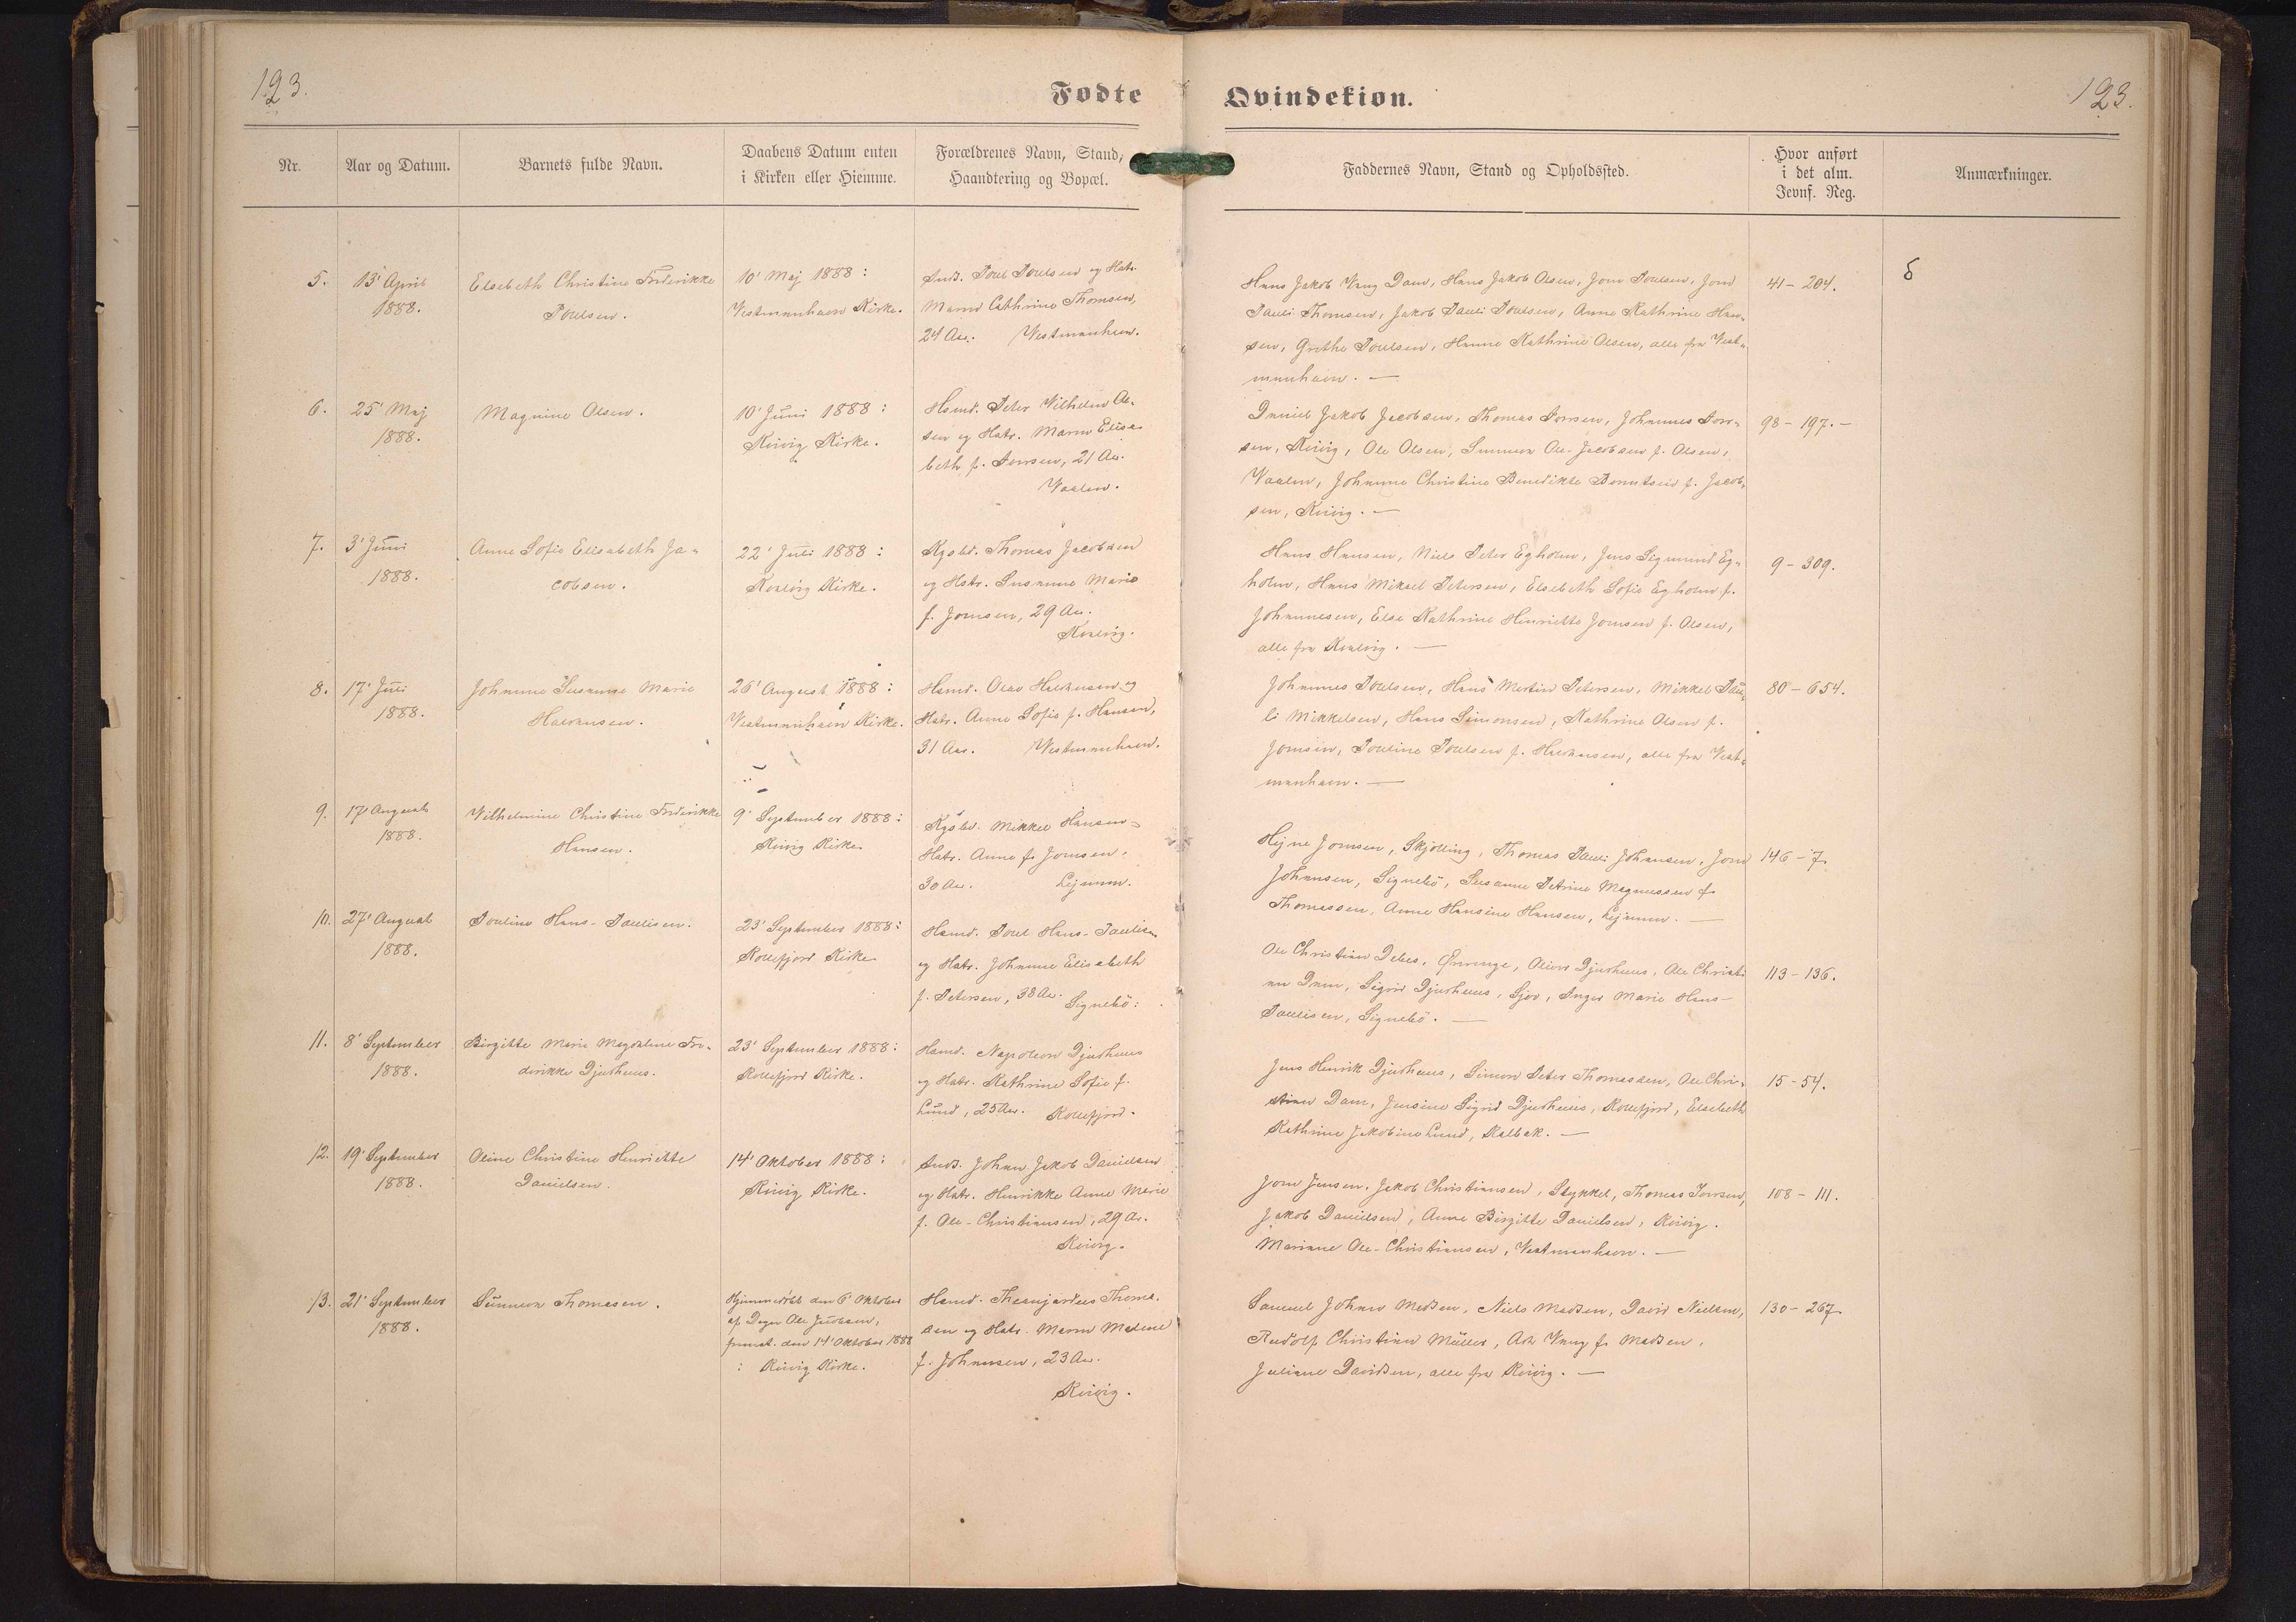 123.
Fødte
Qvindekiøn.
123.
Nr.
Aar og Datum.
Barnets fulde Navn.
Daabens Datum enten
i Kirken eller Hiemme.
Forældrenes Navn, Stand,
Haandtering og Bopæl.
Faddernes Navn, Stand og Opholdssted.
Hvor anført
i det alm.
Jevnf. Reg.
Anmærkninger.
5.
13' April
1888.
Elsebeth Christine Frederikke
Poulsen.
10' Maj 1888:
Vestmanhavn Kirke.
Poul Poulsen og Hstr.
Maren Cathrine Thomsen,
24 Aar. Vestmanhavn.
Hans Jakob Vang Dam, Hans Jakob Olsen, Joen Poulsen, Joen
Pauli Thomsen, Jakob Pauli Poulsen, Anne Kathrine Han-
sen, Grethe Poulsen, Hanne Kathrine Olsen, alle fra Vest-
manhavn. —
41 - 204.
6.
25' Maj
1888.
Magnine Olsen.
10' Juni 1888:
Kvivig Kirke.
Hsmd. Peter Wilhelm Ol-
sen og Hstr. Maren Elisa-
beth f. Joensen, 21 Aar.
Vaalen.
Daniel Jakob Jacobsen, Thomas Joensen, Johannes Joen-
sen, Kvivig, Ole Olsen, Sunneva Ole-Jacobsen f. Olsen,
Vaalen, Johanne Christine Benedikte Berentsen f. Jacob-
sen, Kvivig. —
98 - 197. -
7.
3' Juni
1888.
Anne Sofie Elisabeth Ja-
cobsen.
22' Juli 1888:
Kvalvig Kirke.
Kgsbd. Thomas Jacobsen
og Hstr. Susanne Marie
f. Joensen, 29 Aar.
Kvalvig.
Hans Hansen, Niels Peter Egholm, Jens Sigmund Eg-
holm, Hans Mikael Petersen, Elsebeth Sofie Egholm f.
Johannesen, Else Kathrine Henriette Joensen f. Olsen,
alle fra Kvalvig. —
9 - 309.
8.
17' Juli
1888.
Johanne Susanne Marie
Haldansen.
26' August 1888:
Vestmanhavn Kirke.
Hsmd. Olav Haldansen og
Hstr. Anne Sofie f. Hansen,
31 Aar. Vestmanhavn.
Johannes Poulsen, Hans Martin Petersen, Mikkel Pau-
li Mikkelsen, Hans Simonsen, Kathrine Olsen f.
Joensen, Pouline Poulsen f. Haldansen, alle fra Vest-
manhavn. —
80 - 654.
9.
17' August
1888.
Wilhelmine Christine Frederikke
Hansen.
9' September 1888:
Kvivig Kirke.
Kgsbd. Mikkel Hansen -
Hstr. Anne f. Joensen.
30 Aar. Lejnum.
Hejne Joensen, Skjelling, Thomas Pauli Johansen, Joen
Johansen, Signebö, Susanne Petrine Magnussen f.
Thomassen, Anne Hansine Hansen, Lejnum. —
146 - 7.
10.
27' August
1888.
Pouline Hans-Paulisen.
23' September 1888:
Kollefjord Kirke.
Hsmd. Poul Hans-Paulisen
og Hstr. Johanne Elisabeth
f. Petersen, 38 Aar. Signebö:
Ole Christian Debes, Oliver Djurhuus, Ole Christi-
an Dam, Sigrid Djurhuus, Sjov, Inger Marie Hans-
Paulisen, Signebö. —
113 - 136.
11.
8' September
1888.
Birgitte Marie Magdalene Fre-
derikke Djurhuus.
23' September 1888:
Kollefjord Kirke.
Hsmd. Napoleon Djurhuus
og Hstr. Kathrine Sofie f.
Lund, 25 Aar. Kollefjord.
Jens Henrik Djurhuus, Simon Peter Thomassen, Ole Chri-
stian Dam, Jensine Sigrid Djurhuus, Kollefjord, Elsebeth
Kathrine Jakobine Lund, Kalbak. —
15 - 54.
12.
19' September
1888.
Oline Christine Henriette
Danielsen.
14' Oktober 1888:
Kvivig Kirke.
Johan Jakob Danielsen
og Hstr. Henrikke Anne Marie
f. Ole-Christiansen, 29 Aar.
Kvivig.
Joen Jensen, Jakob Christiansen, Stykket, Thomas Joensen,
Jakob Danielsen, Anne Birgitte Danielsen, Kvivig.
Mariane Ole-Christiansen, Vestmanhavn. —
108 - 111.
13.
21' September
1888.
Sunneva Thomasen.
Hjemmedöbt den 6' Oktober
af Degn Ole Jacobsen,
fremst. den 14' Oktober 1888
: Kvivig Kirke.
Hsmd. Thomas
sen og Hstr. Maren Malene
f. Johansen, 23 Aar.
Kvivig.
Samuel Johan Madsen, Niels Madsen, David Nielsen,
Rudolf Christian Müller, Vang f. Madsen,
Juliane Davidsen, alle fra Kvivig. —
130 - 267.